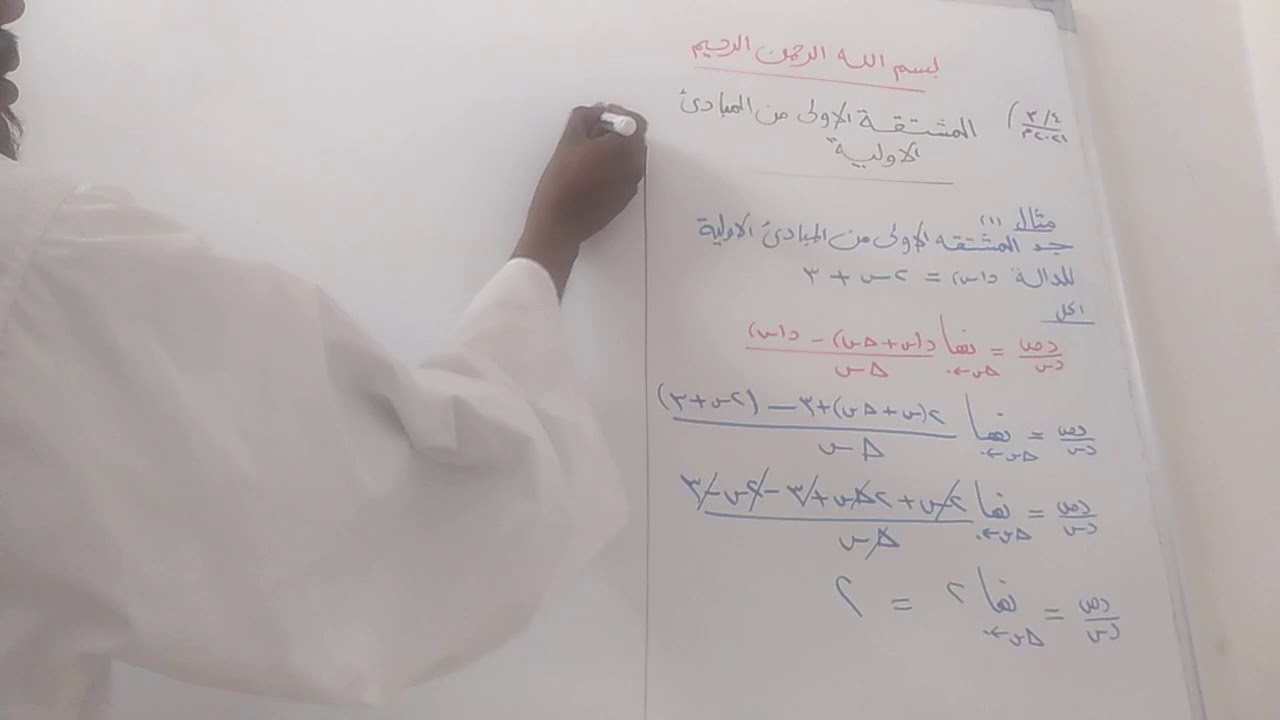 بسم الله الرحمن الرحيم
٣/٤
٢٠٢١م
المشتقة الاولى من المبادئ
الاولية
مثال (١)
جد المشتقه الاولى من المبادئ الاولية
للدالة د(س) = ٢س + ٣
الحل
دص/دس = نها Δس←٠ د(س+Δس) − د(س) / Δس
دص/دس = نها Δس←٠ ٢(س+Δس)+٣ − (٢س+٣) / Δس
دص/دس = نها Δس←٠ ٢س + ٢Δس + ٣ − ٢س − ٣ / Δس
دص/دس = نها Δس←٠ ٢ = ٢